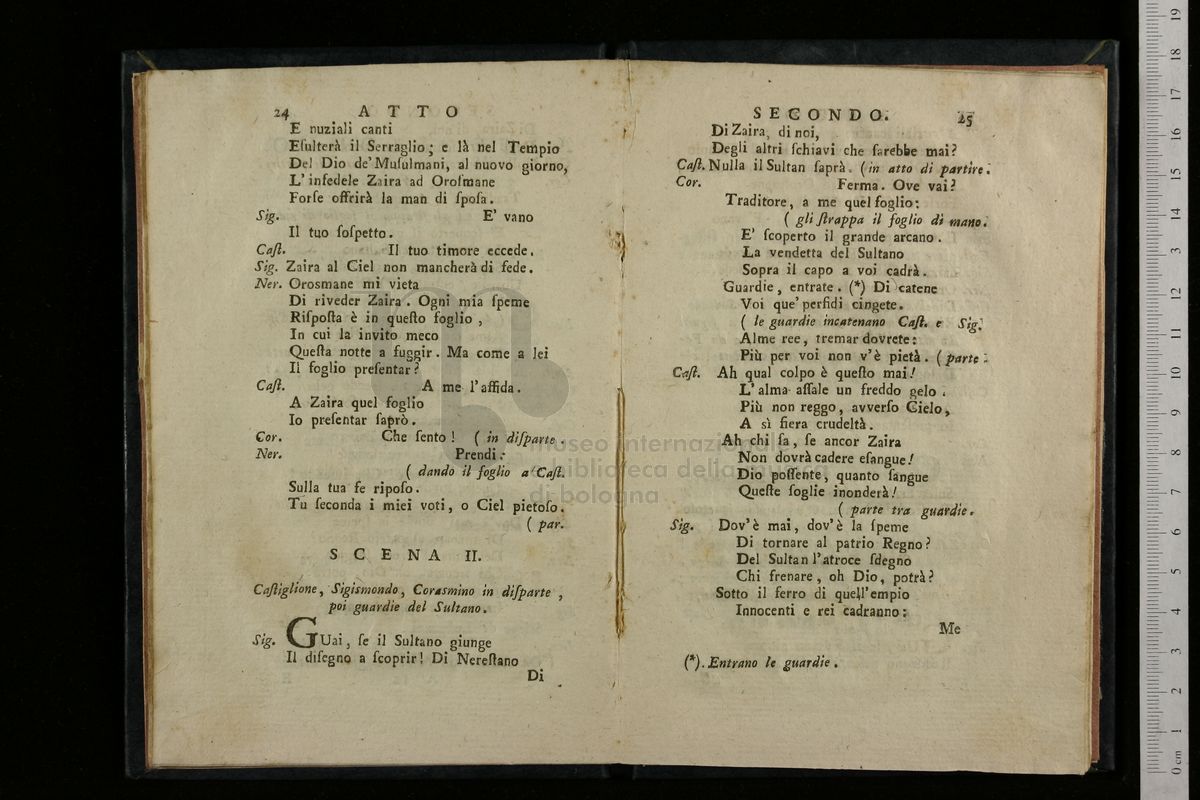 24 ATTO
E nuziali canti
Eſulterà il Serraglio; e là nel Tempio
Del Dio de' Muſulmani, al nuovo giorno,
L'infedele Zaira ad Oroſmane
Forſe offrirà la man di ſpoſa.
Sig. E' vano
Il tuo ſoſpetto.
Caſt. Il tuo timore eccede.
Sig. Zaira al Ciel non mancherà di fede.
Ner. Orosmane mi vieta
Di riveder Zaira. Ogni mia ſpeme
Riſpoſta è in queſto foglio,
In cui la invito meco
Queſta notte a fuggir. Ma come a lei
Il foglio preſentar?
Caſt. A me l'affida.
A Zaira quel foglio
Io preſentar ſaprò.
Cor. Che ſento! (in diſparte.
Ner. Prendi:
(dando il foglio a Caſt.
Sulla tua fe ripoſo.
Tu ſeconda i miei voti, o Ciel pietoſo.
(par.
SCENA II.
Caſtiglione, Sigismondo, Corasmino in diſparte,
poi guardie del Sultano.
Sig. GUai, ſe il Sultano giunge
Il diſegno a ſcoprir! Di Nereſtano
Di
SECONDO. 25
Di Zaira, di noi,
Degli altri ſchiavi che ſarebbe mai?
Caſt. Nulla il Sultan ſaprà. (in atto di partire.
Cor. Ferma. Ove vai?
Traditore, a me quel foglio:
(gli ſtrappa il foglio di mano.
E' ſcoperto il grande arcano.
La vendetta del Sultano
Sopra il capo a voi cadrà.
Guardie, entrate. (*) Di catene
Voi que' perfidi cingete.
(le guardie incatenano Caſt. e Sig.
Alme ree, tremar dovrete:
Più per voi non v'è pietà. (parte.
Caſt. Ah qual colpo è queſto mai!
L'alma aſſale un freddo gelo.
Più non reggo, avverſo Cielo,
A sì fiera crudeltà.
Ah chi ſa, ſe ancor Zaira
Non dovrà cadere eſangue!
Dio poſſente, quanto ſangue
Queſte ſoglie inonderà!
(parte tra guardie.
Sig. Dov'è mai, dov'è la ſpeme
Di tornare al patrio Regno?
Del Sultan l'atroce ſdegno
Chi frenare, oh Dio, potrà?
Sotto il ferro di quell'empio
Innocenti e rei cadranno:
Me
(*). Entrano le guardie.
museo internazionale
e biblioteca della musica
di bologna
0 cm 1 2 3 4 5 6 7 8 9 10 11 12 13 14 15 16 17 18 19